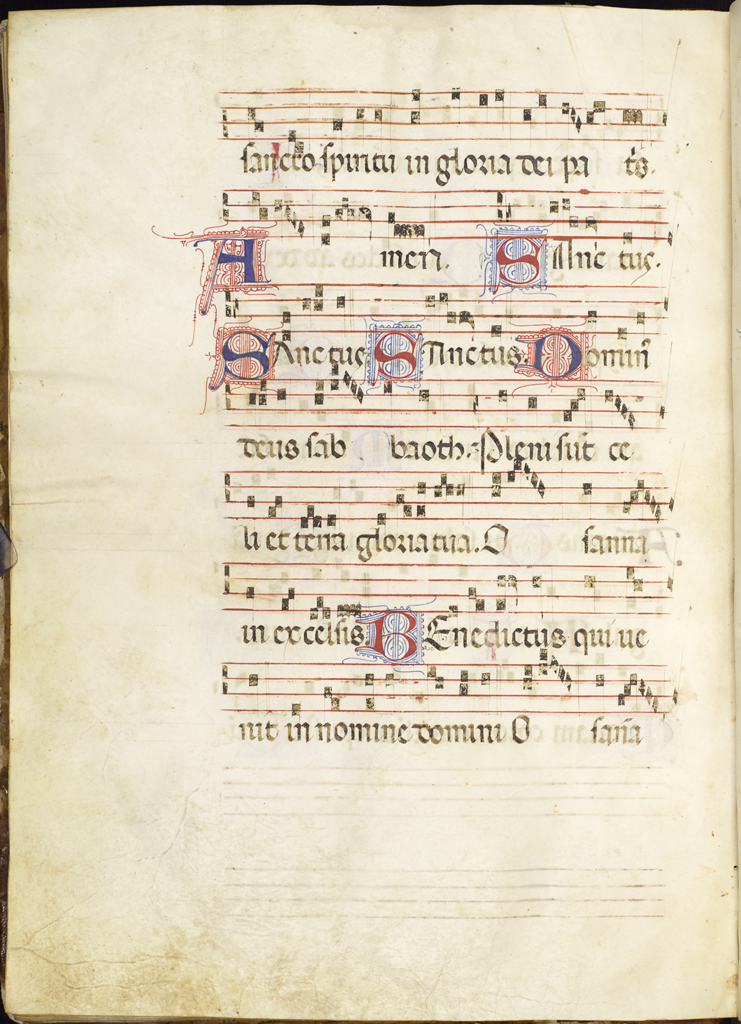 sancto spiritu in gloria dei pa tr̄s.
Amen. SAnc tus.
SAnctus SAnctus. Dominꝰ
deus sab baoth. Pleni sūt ce
li et terra gloria tua. O sanna
in excelsis BEnedictus qui ue
nit in nomine domini O san̄a